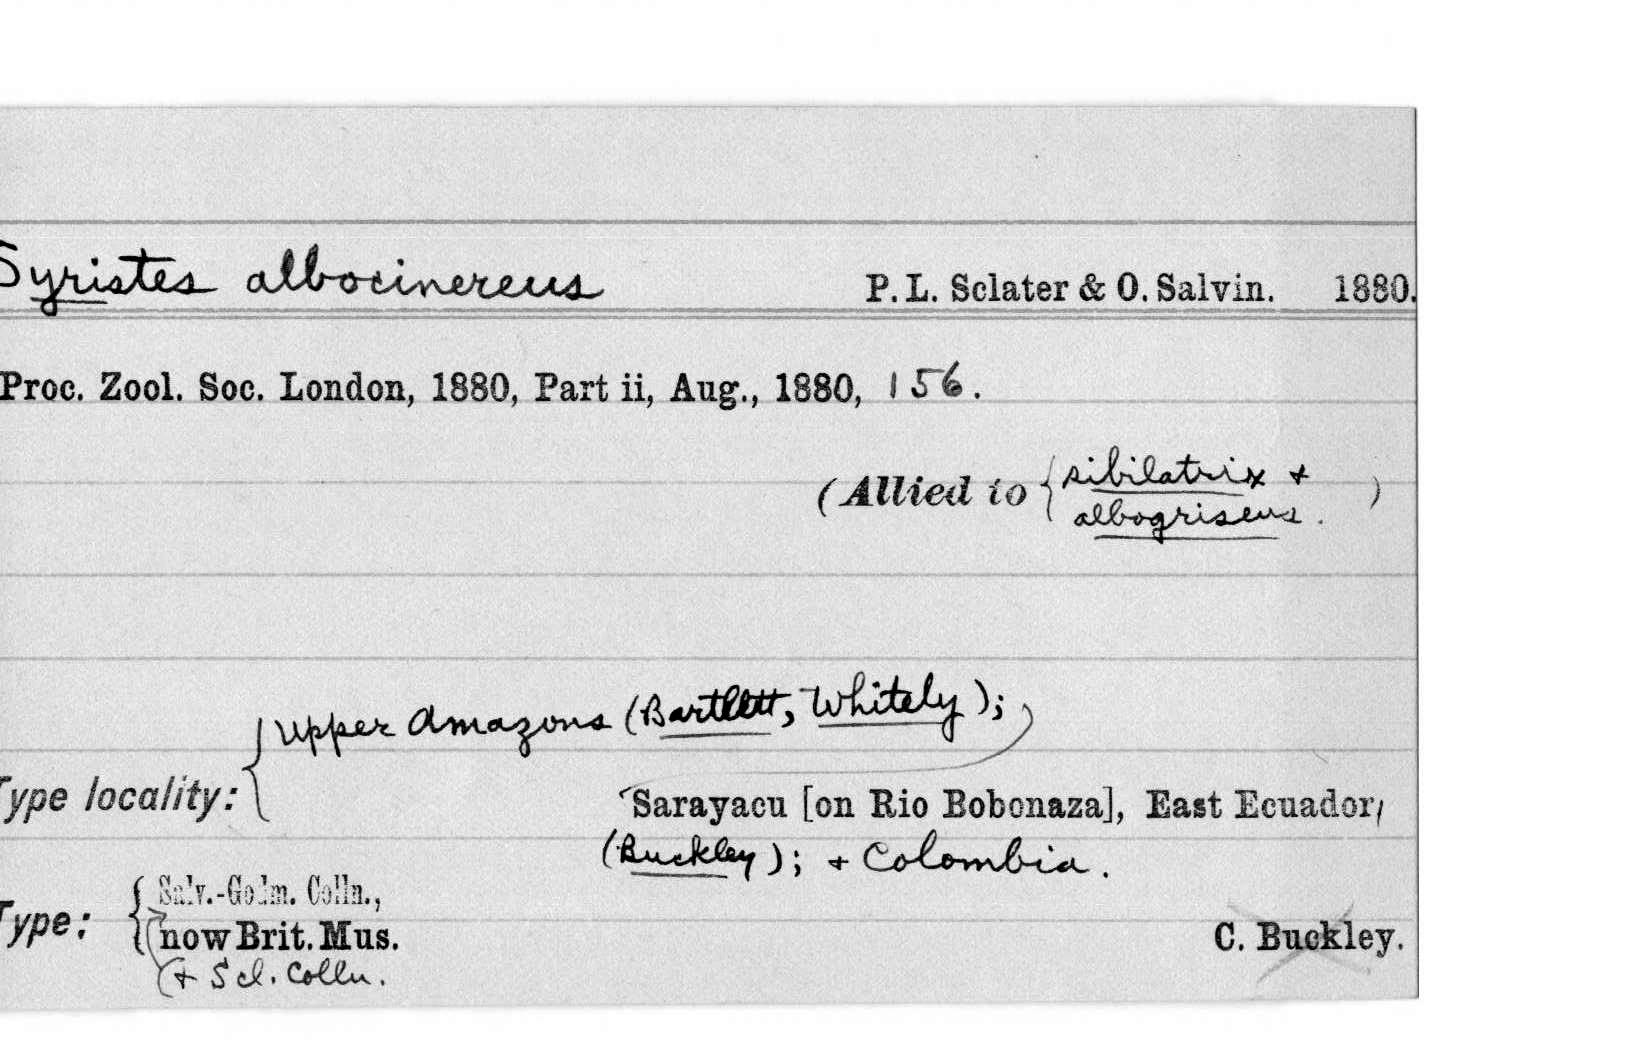 Syristes albocinereus P. L. Sclater & O. Salvin. 1880.
Proc. Zool. Soc. London, 1880, Part ii, Aug., 1880, 156.
(Allied to { sibilatrix +
albogriseus. )
Upper Amazons (Bartlett, Whitely);
Type locality: { Sarayacu [on Rio Bobonaza], East Ecuador,
(Buckley); + Colombia.
Salv.-Godm. Colln.,
Type: { now Brit. Mus. C. Buckley.
(+ Scl. Colln.